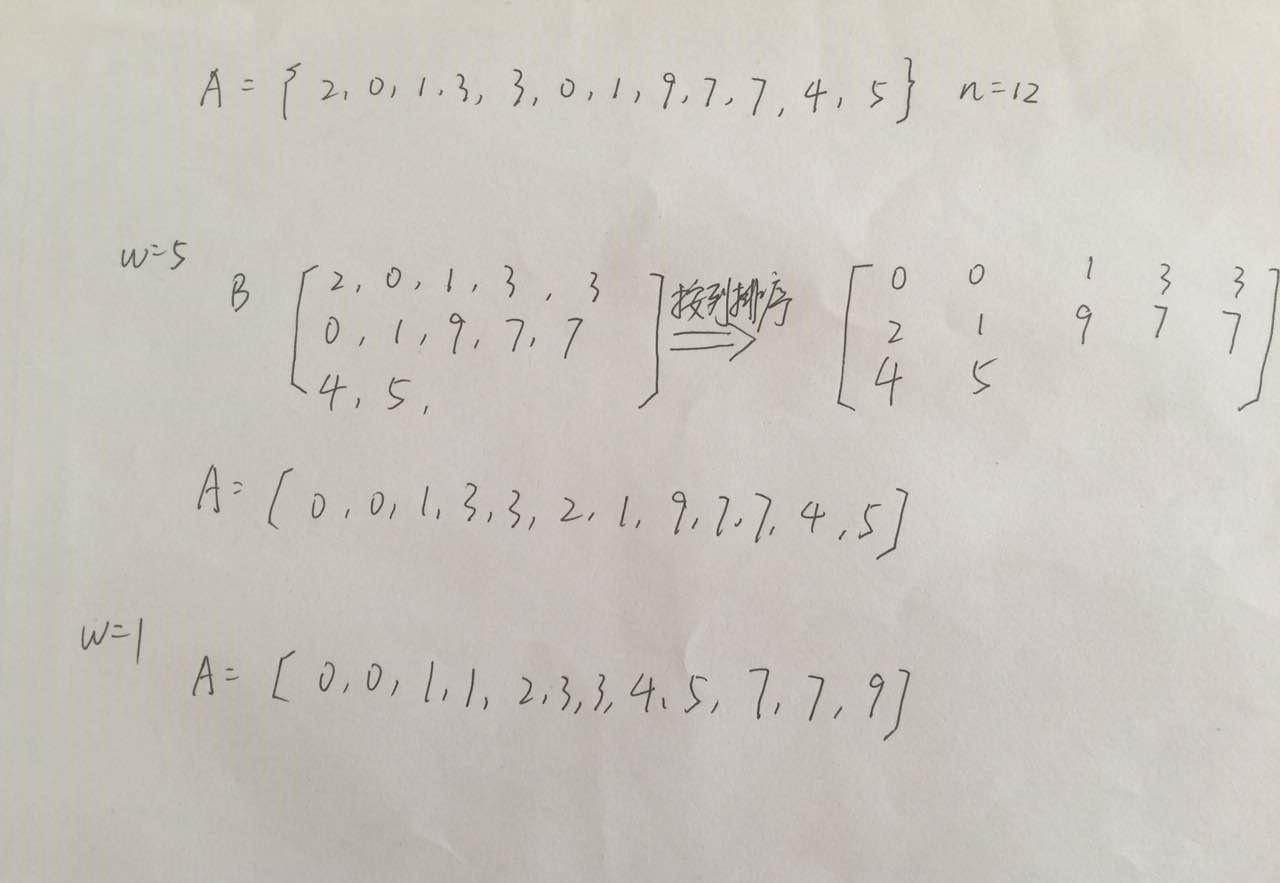 A = { 2, 0, 1, 3, 3, 0, 1, 9, 7, 7, 4, 5 } n=12
w=5
B [ 2, 0, 1, 3, 3
0, 1, 9, 7, 7
4, 5, ]
按列排序
⟹
[ 0 0 1 3 3
2 1 9 7 7
4 5 ]
A= [ 0, 0, 1, 3, 3, 2, 1, 9, 7, 7, 4, 5 ]
w=1
A= [ 0, 0, 1, 1, 2, 3, 3, 4, 5, 7, 7, 9 ]